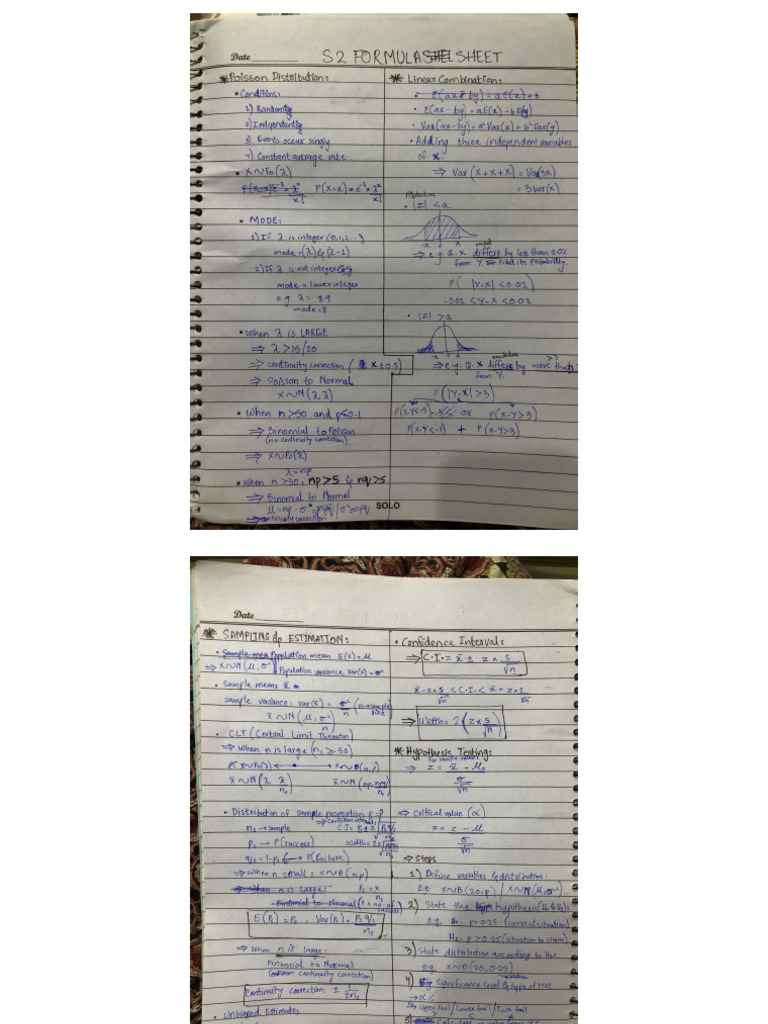 Date
S2 FORMULA SHEET
* Poisson Distribution:
• Conditions:
1) Randomly
2) Independently
3) Events occur singly
4) Constant average rate
• X~Po(λ)
P(X=x) = e^-λ × λ^x / x!
• MODE:
1) If λ is integer (0,1,2...,
mode = (λ) & (λ-1)
2) If λ is not integer
mode = lower integer
e.g. λ = 8.9
mode = 8
• When λ is LARGE
⇒ λ > 15/20
⇒ continuity correction ( X ± 0.5)
⇒ Poisson to Normal
X~N(λ, λ)
• When n >50 and p<0.1
⇒ Binomial to Poisson
(no continuity correction)
⇒ X~Po(λ)
λ = np
• When n >30, np >5 & nq >5
⇒ Binomial to Normal
⇒ continuity correction
* Linear Combination:
• E(ax - by) = aE(x) - bE(y)
• Var(ax-by) = a² Var(x) + b² Var(y)
• Adding three independent variables
of X.
⇒ Var (X+X+X) = Var(3X)
= 3 Var(x)
• |z| < a
-a 0 a
⇒ e.g. Q: X differs by less than 0.02
from Y. Find its Probability
P( |Y-X| < 0.02)
-0.02 < Y-X < 0.02
• |z| > a
-a 0 a
>3
⇒ e.g. Q. X differs by more than
from Y.
P(|Y-X| >3)
or P(X-Y >3)
P(X-Y<-3) + P(X-Y>3)
SOLO
Date
* SAMPLING & ESTIMATION:
• Population mean E(x) = μ
⇒ X~N(μ, σ²) Population variance, var(x) = σ²
• Sample means x̄
sample variance: var(x̄) = σ²/n (n→sample size)
x̄ ~ N(μ, σ²/n)
• CLT (Central Limit Theorem)
⇒ when n is large (n ≥ 30)
X~Po(λ) X~B(n,p)
x̄~N(λ, λ/n) x̄~N(np, npq/n)
• Distribution of sample proportion
⇒ Confidence interval:
nₛ → sample
pₛ → P(success)
qₛ = 1-pₛ → P(failure)
⇒ When n small: X~B(n,p)
E(Pₛ) = Pₛ , Var(Pₛ) = Pₛqₛ/nₛ
⇒ When n is large:
Binomial to Normal
continuity correction)
Continuity correction: ± 1/2nₛ
• Unbiased Estimates
• Confidence Interval:
⇒ C.I. = x̄ ± z × s/√n
x̄ - z×s/√n < C.I. < x̄ + z×s/√n
⇒ Width = 2(z × s/√n)
* Hypothesis Testing:
⇒ z = x̄ - μ₀ / σ/√n
⇒ Critical value (α)
z = c - μ / σ/√n
⇒ Steps
1) Define variables & distribution.
E.g. X~B(20,p) / X~N(μ,σ²)
2) State the hypothesis
e.g. H₀: p=0.25 (current situation)
H₁: p > 0.25 (situation to claim)
3) State distribution according to H₀:
e.g. X~B(20,0.25)
4) Significance level & type of test
→ α
Upper tail / Lower tail / Two tail